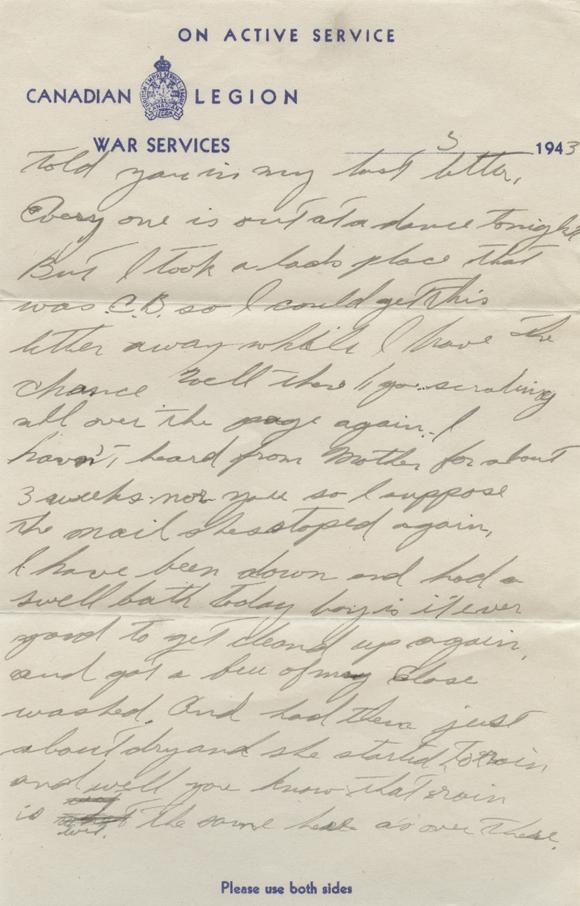 ON ACTIVE SERVICE
CANADIAN LEGION
WAR SERVICES
5 1943
told you in my last letter,
Every one is out at a dance tonight
But I took a lads place that
was C.B. so I could get this
letter away while I have the
chance Well there I go scraling
all over the page again. I
haven't heard from Mother for about
3 weeks nor you so I suppose
the mail she stoped again,
I have been down and had a
swell bath today boy is it ever
good to get cleand up again,
and got a few of my close
washed. And had them just
about dry and she started to rain
and well you know that rain
is wet. the same here as over there.
Please use both sides